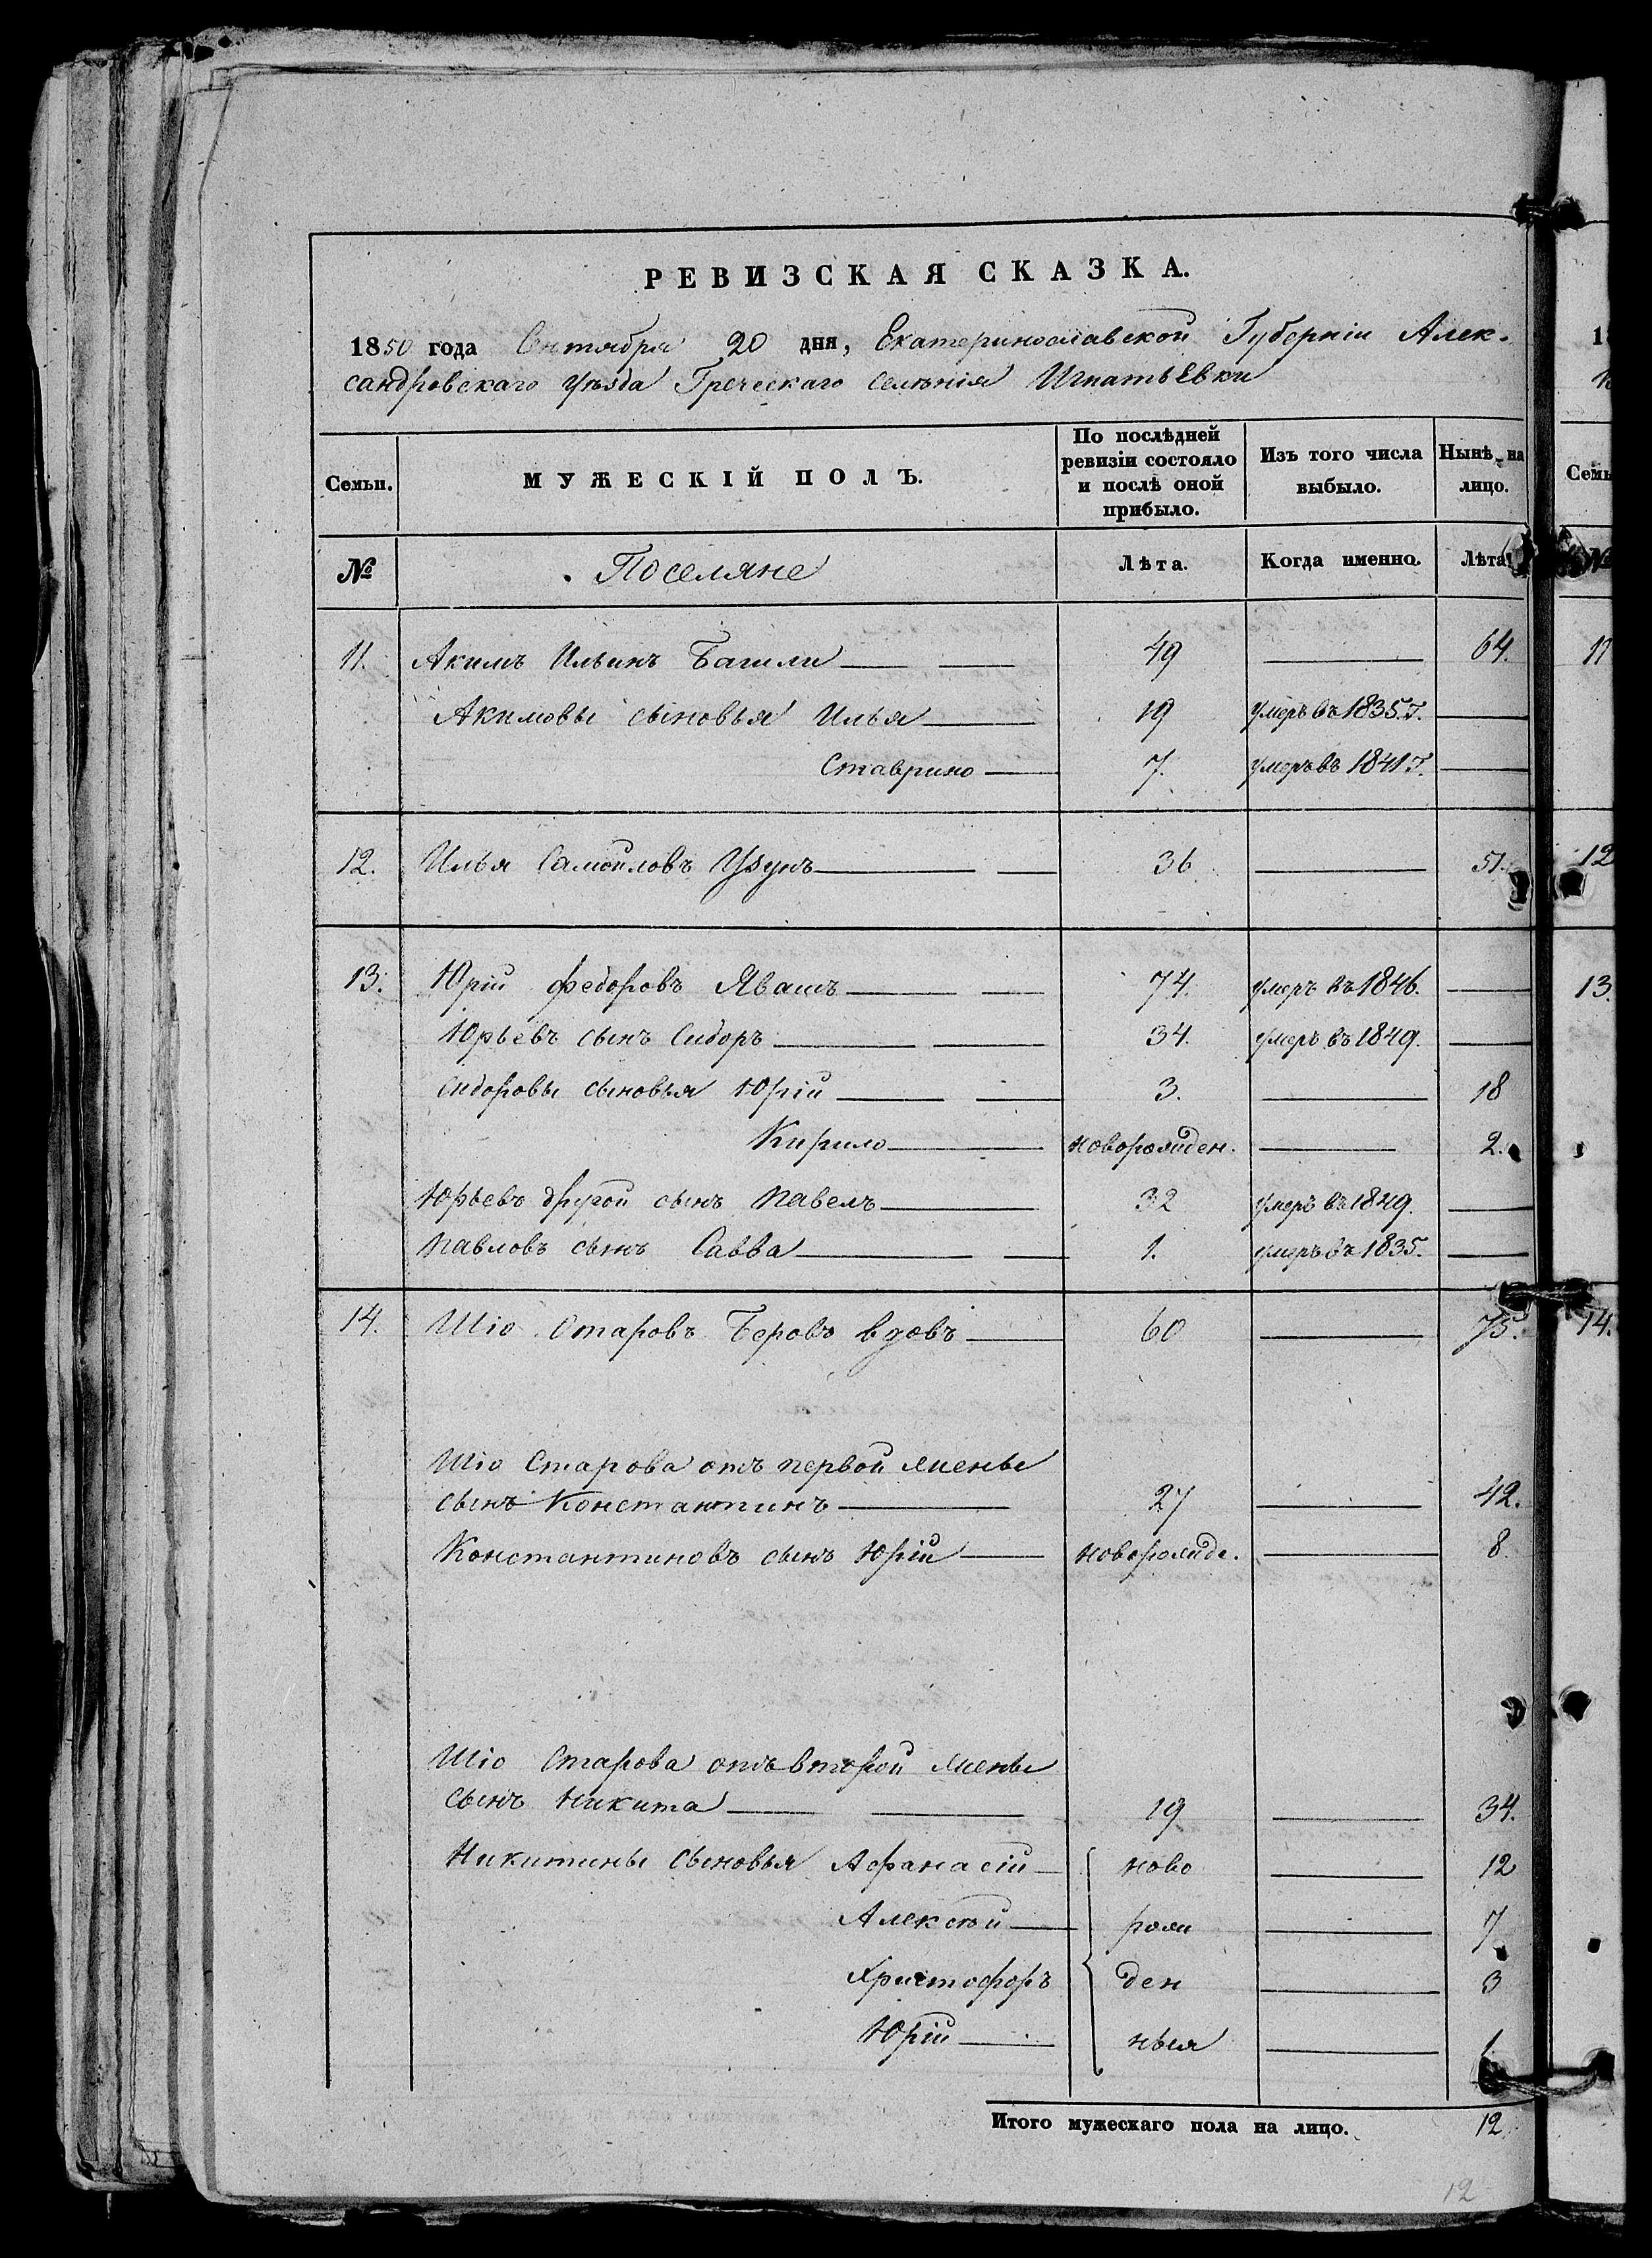 РЕВИЗСКАЯ СКАЗКА.
1850 года Сентября 20 дня, Екатеринославской Губерніи Алек-
сандровскаго уѣзда Греческаго селенія Игнатьевки
Семьи.
МУЖЕСКІЙ ПОЛЪ.
По послѣдней
ревизіи состояло
и послѣ оной
прибыло.
Изъ того числа
выбыло.
Нынѣ на
лицо.
№ Поселяне Лѣта. Когда именно. Лѣта.
11. Акимъ Ильинъ Багили 49 64.
Акимовы сыновья Илья 19 умеръ въ 1835. г.
Ставрино 7. умеръ въ 1841 г.
12. Илья Самойловъ Узунъ 36 51.
13. Юрій Федоровъ Явашъ 74. умеръ въ 1846.
Юрьевъ сынъ Сидоръ 34. умеръ въ 1849.
Сидоровы сыновья Юрій 3. 18
Кирило новорожден. 2.
Юрьевъ другой сынъ Павелъ 32 умеръ въ 1849.
Павловъ сынъ Савва 1. умеръ въ 1835.
14. Шіо Старовъ Беровъ вдовъ 60 75.
Шіо Старова отъ первой жены
сынъ Константинъ 27 42.
Константиновъ сынъ Юрій новорожде. 8.
Шіо Старова отъ второй жены
сынъ Никита 19 34.
Никитины сыновья Афанасій ново 12
Алексѣй рож 7
Христофоръ ден 3
Юрій ныя
Итого мужескаго пола на лицо. 12
12
18
Семь
№
11
12
13.
14.